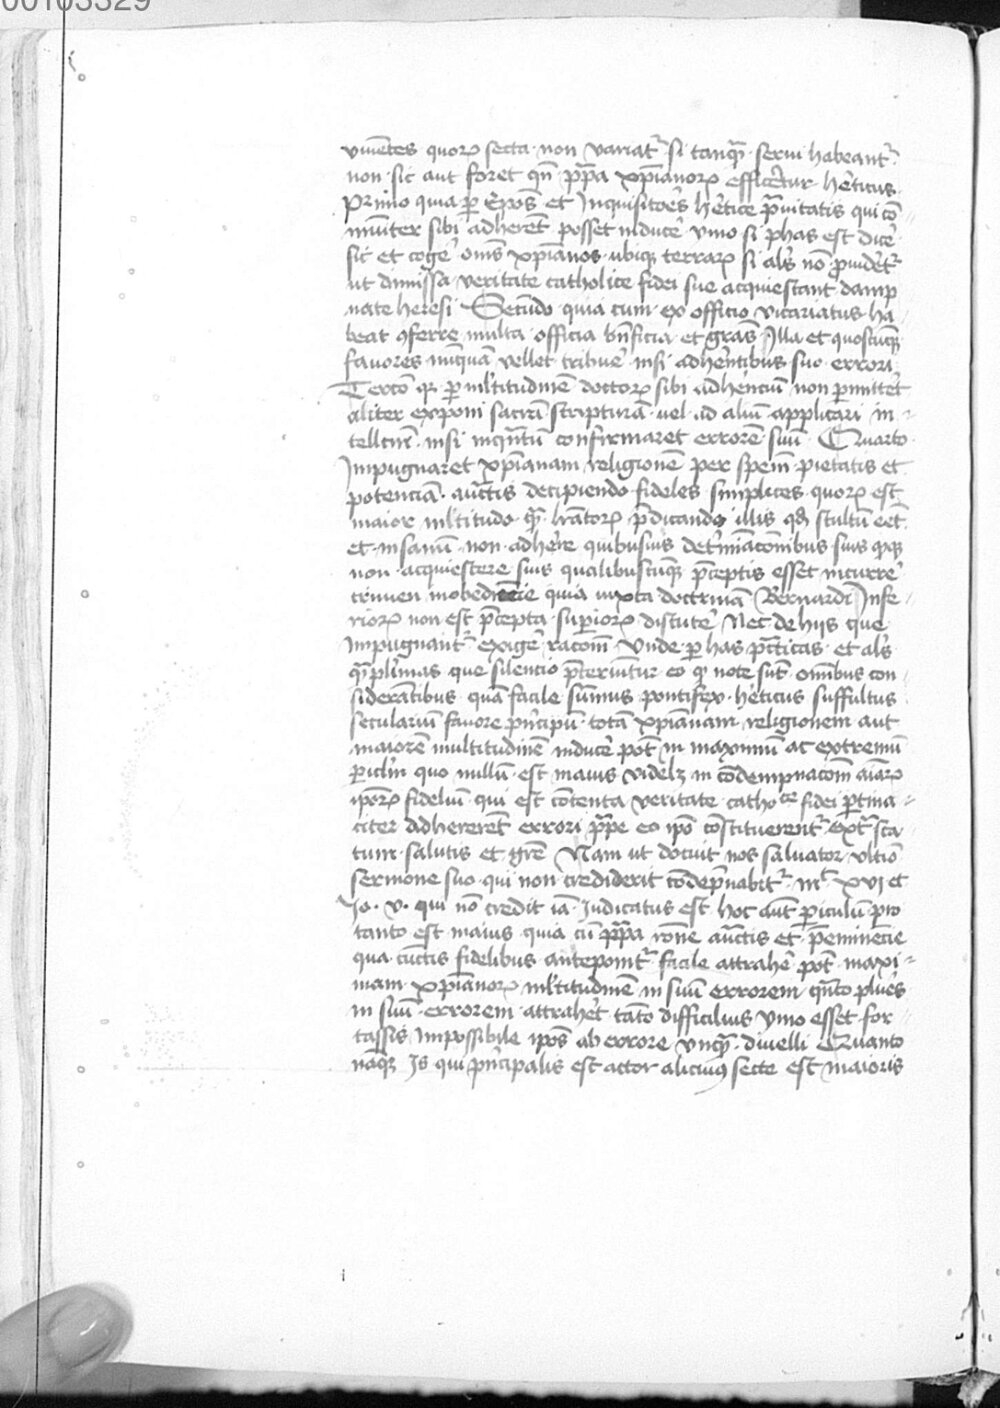 00103329
viuētes quoꝝ secta non variat᷑ si tanqᷓ serui habeant᷑
non sic aut foret qn̄ pp̄a xp̄ianoꝝ efficeretur hēticus
Primo quia ꝑ Ep̄os et Inquisitoēs hētice p̄uitatis qui cō
muniter sibi adherēt posset inducē ymo si phas est dicē
sic et cogē om̄s xp̄ianos ubiqꝫ terraꝝ si al's nō ꝓuidēt᷑
ut dimissa veritate catholice fidei sue acquiescant damp
nate heresi Secūdo quia cum ex officio vicariatus ha
beat ꝯferre multa officia bn̄ficia et gr̄as Illa et quoscūqꝫ
fauores nunquā vellet tribuē nisi adherētibus suo errori
Tercō qꝛ ꝑ ml'titudinē doctoꝝ sibi adhēnciū non ꝑmittēt
aliter exponi sacrā scripturā uel ad aliū applicari in
tellcm̄ nisi inqn̄tū confirmaret errorē suū Quarto
Impugnaret xp̄ianam religionē per spem̄ pietatis et
potenciā auct̄is decipiendo fideles simplices quoꝝ est
maior ml'titudo qᷓ lr̄atoꝝ p̄dicando illis qd̄ stultū eēt
et insanū non adhēre quibusuis det'miacōnibus suis qꝫ
non acquiescere suis qualibuscūqꝫ p̄ceptis esset incurrē
crimen inobediēcie quia iuxta doctrinā Bernardi Infe
rioꝝ non est p̄cepta suꝑioꝝ discutē Nec de hijs que
Impugnant᷑ exigē racōm Unde ꝑ has p̄cticas et al's
qᷓplīmas que silencio p̄tereūtur eo qꝫ note sūt om̄ibus con
siderātibus quā facile sūmus pontifex hēticus suffultus
seculariū fauore p̄ncipū totā xp̄ianam religionem aut
maiorē multitudinē inducē pot̄ in maximū ac extremū
ꝑic'lm quo nullū est maius videlꝫ in cōdempnacōm aīaꝝ
ip̄oꝝ fideliū qui est cōtenta veritate cathocͤ fidei ꝑtina
citer adhererēt errori pp̄e eo ip̄o cōstituerent᷑ ext᷑ sta
tum salutis et gr̄e Nam ut docuit nos saluator vltīo
sermone suo qui non crediderit cōdēpnabit᷑ m̄ͬ xvi et
Jo. v. qui nō credit iā Iudicatus est hoc aūt ꝑiculū pro
tanto est maius quia cū pp̄a rōne auct̄is et p̄eminēcie
qua cūctis fidelibus anteponit᷑ facile attrahē pot̄ maxi
mam xp̄ianoꝝ ml'titudinē in suū errorem qn̄to plurēs
in suū errorem attrahēt tāto difficilius ymo esset for
tassis Impossibile ip̄os ab errore vnqᷓ diuelli Quanto
nāqꝫ Is qui p̄ncipalis est actor alicuiꝰ secte est maioris